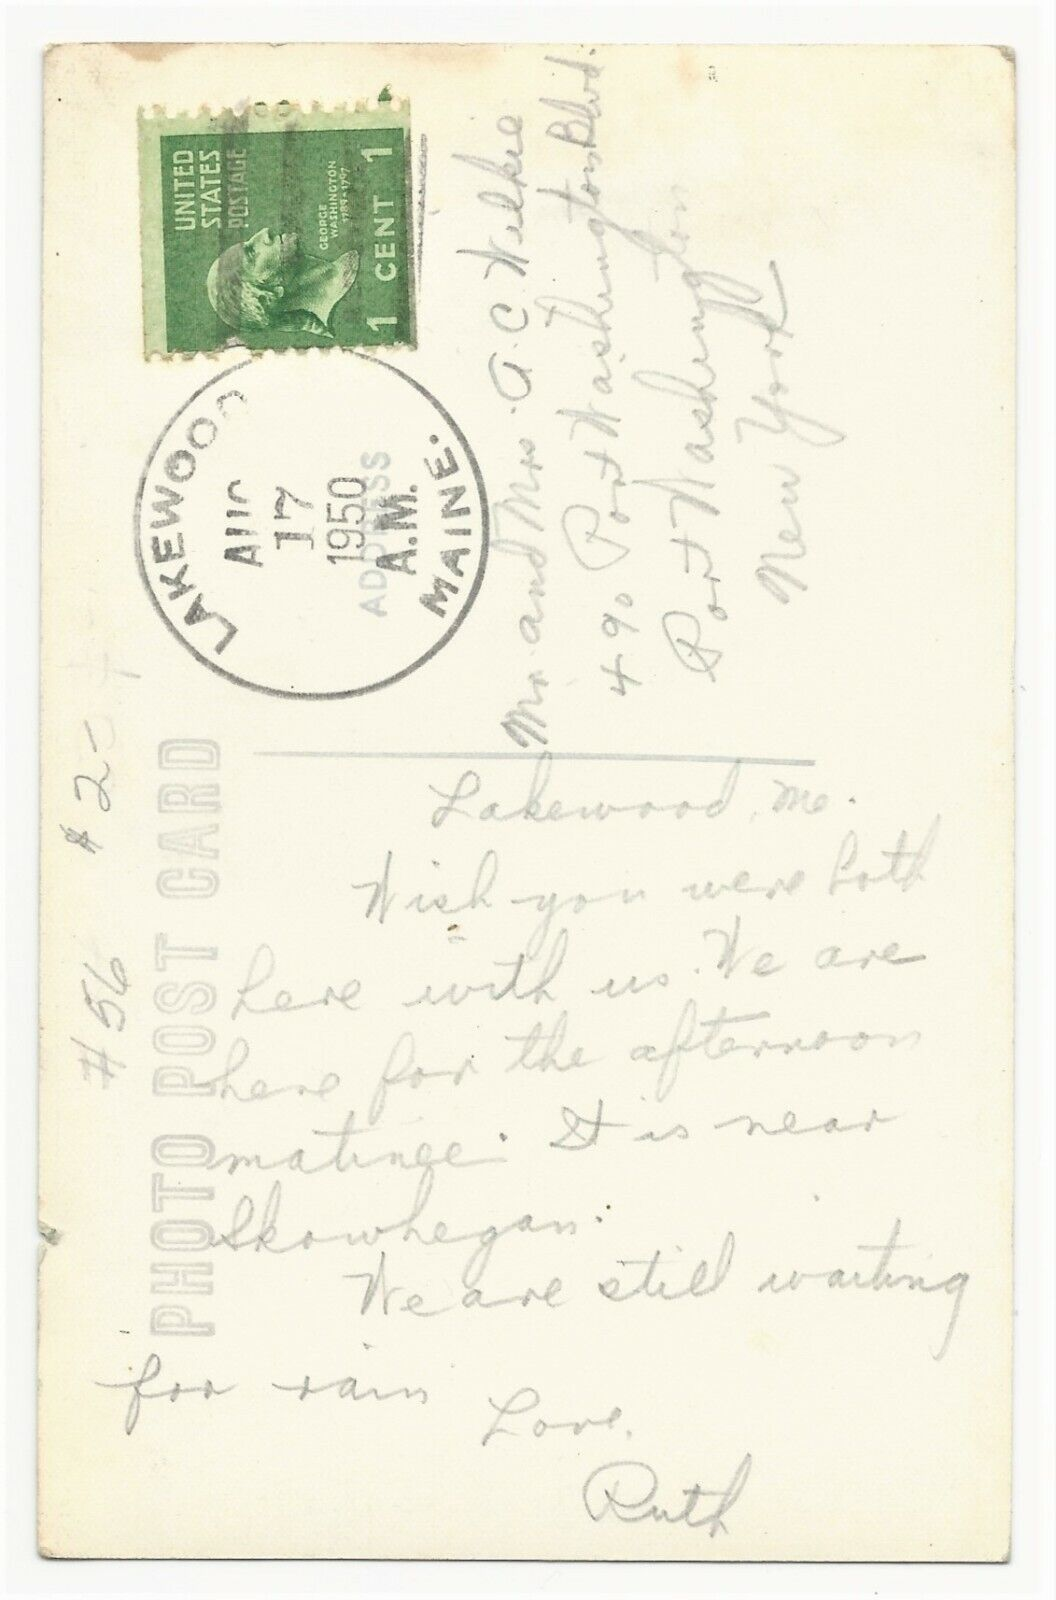 PHOTO POST CARD
ADDRESS
UNITED
STATES
POSTAGE
GEORGE
WASHINGTON
1789-1797
1 CENT 1
LAKEWOOD
AUG
17
1950
A.M.
MAINE.
#56 #2
Lakewood, Me.
Wish you were both
here with us. We are
here for the afternoon
matinee. It is near
Skowhegan.
We are still waiting
for rain
Love,
Ruth
Mr. and Mrs. A C Wilkie
490 Port Washington Blvd.
Port Washington
New York